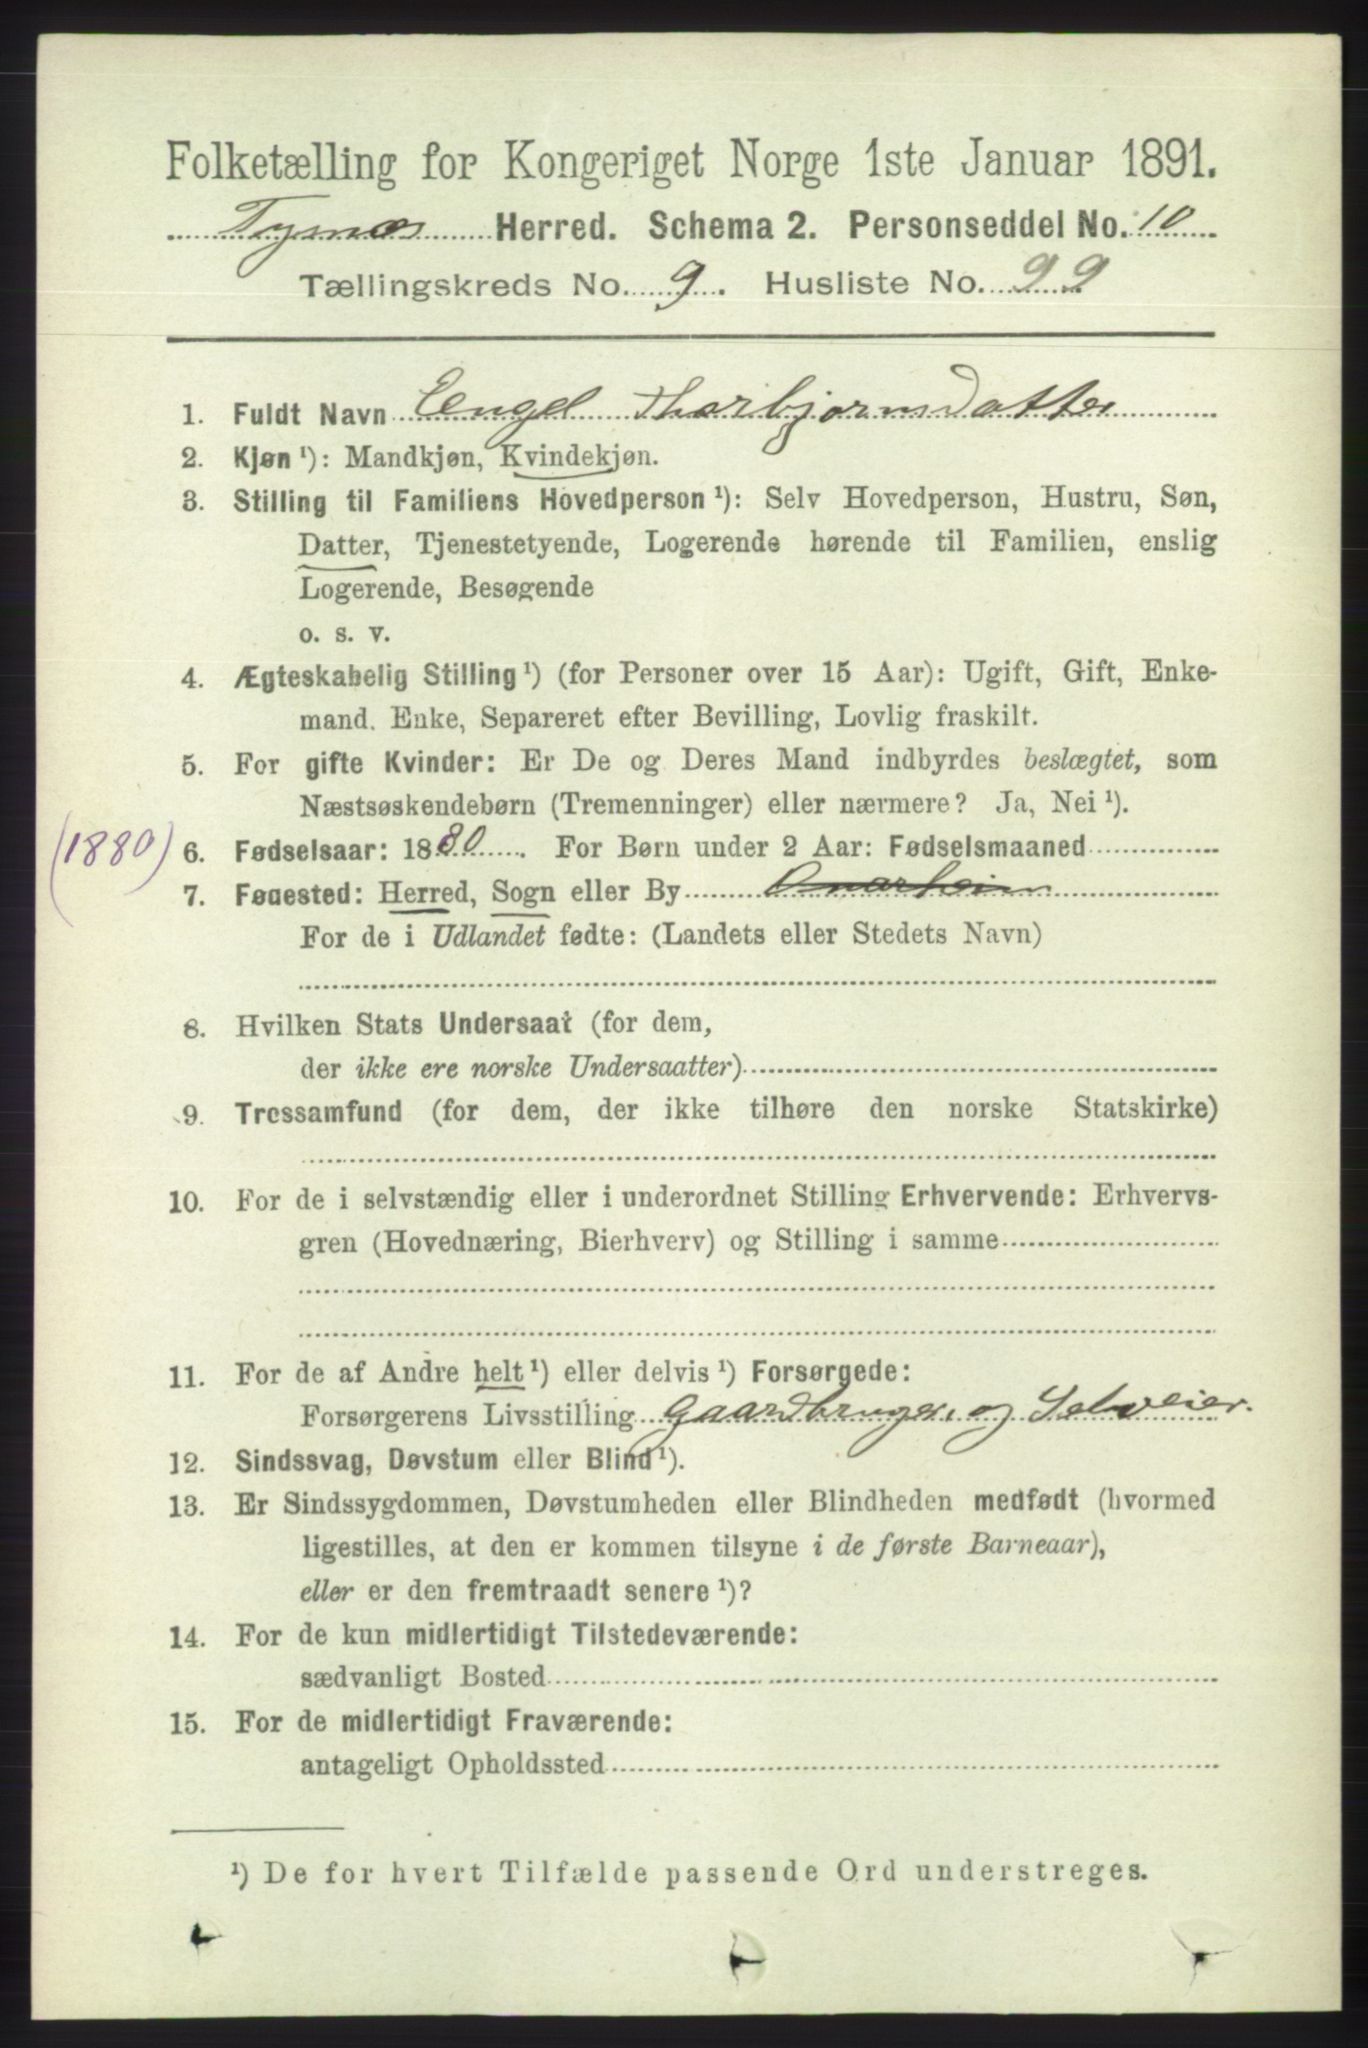 Folketælling for Kongeriget Norge 1ste Januar 1891.
Tysnæs Herred. Schema 2. Personseddel No. 10
Tællingskreds No. 9. Husliste No. 99
1. Fuldt Navn Engel Thorbjørnsdatter
2. Kjøn ¹): Mandkjøn, Kvindekjøn.
3. Stilling til Familiens Hovedperson ¹): Selv Hovedperson, Hustru, Søn,
Datter, Tjenestetyende, Logerende hørende til Familien, enslig
Logerende, Besøgende
o. s. v.
4. Ægteskabelig Stilling ¹) (for Personer over 15 Aar): Ugift, Gift, Enke-
mand, Enke, Separeret efter Bevilling, Lovlig fraskilt.
5. For gifte Kvinder: Er De og Deres Mand indbyrdes beslægtet, som
Næstsøskendebørn (Tremenninger) eller nærmere? Ja, Nei ¹).
(1880) 6. Fødselsaar: 1880. For Børn under 2 Aar: Fødselsmaaned
7. Fødested: Herred, Sogn eller By Onarheim
For de i Udlandet fødte: (Landets eller Stedets Navn)
8. Hvilken Stats Undersaat (for dem,
der ikke ere norske Undersaatter)
9. Trossamfund (for dem, der ikke tilhøre den norske Statskirke)
10. For de i selvstændig eller i underordnet Stilling Erhvervende: Erhvervs-
gren (Hovednæring, Bierhverv) og Stilling i samme
11. For de af Andre helt ¹) eller delvis ¹) Forsørgede:
Forsørgerens Livsstilling Gaardbruger, og Selveier.
12. Sindssvag, Døvstum eller Blind ¹).
13. Er Sindssygdommen, Døvstumheden eller Blindheden medfødt (hvormed
ligestilles, at den er kommen tilsyne i de første Barneaar),
eller er den fremtraadt senere ¹)?
14. For de kun midlertidigt Tilstedeværende:
sædvanligt Bosted
15. For de midlertidigt Fraværende:
antageligt Opholdssted
¹) De for hvert Tilfælde passende Ord understreges.